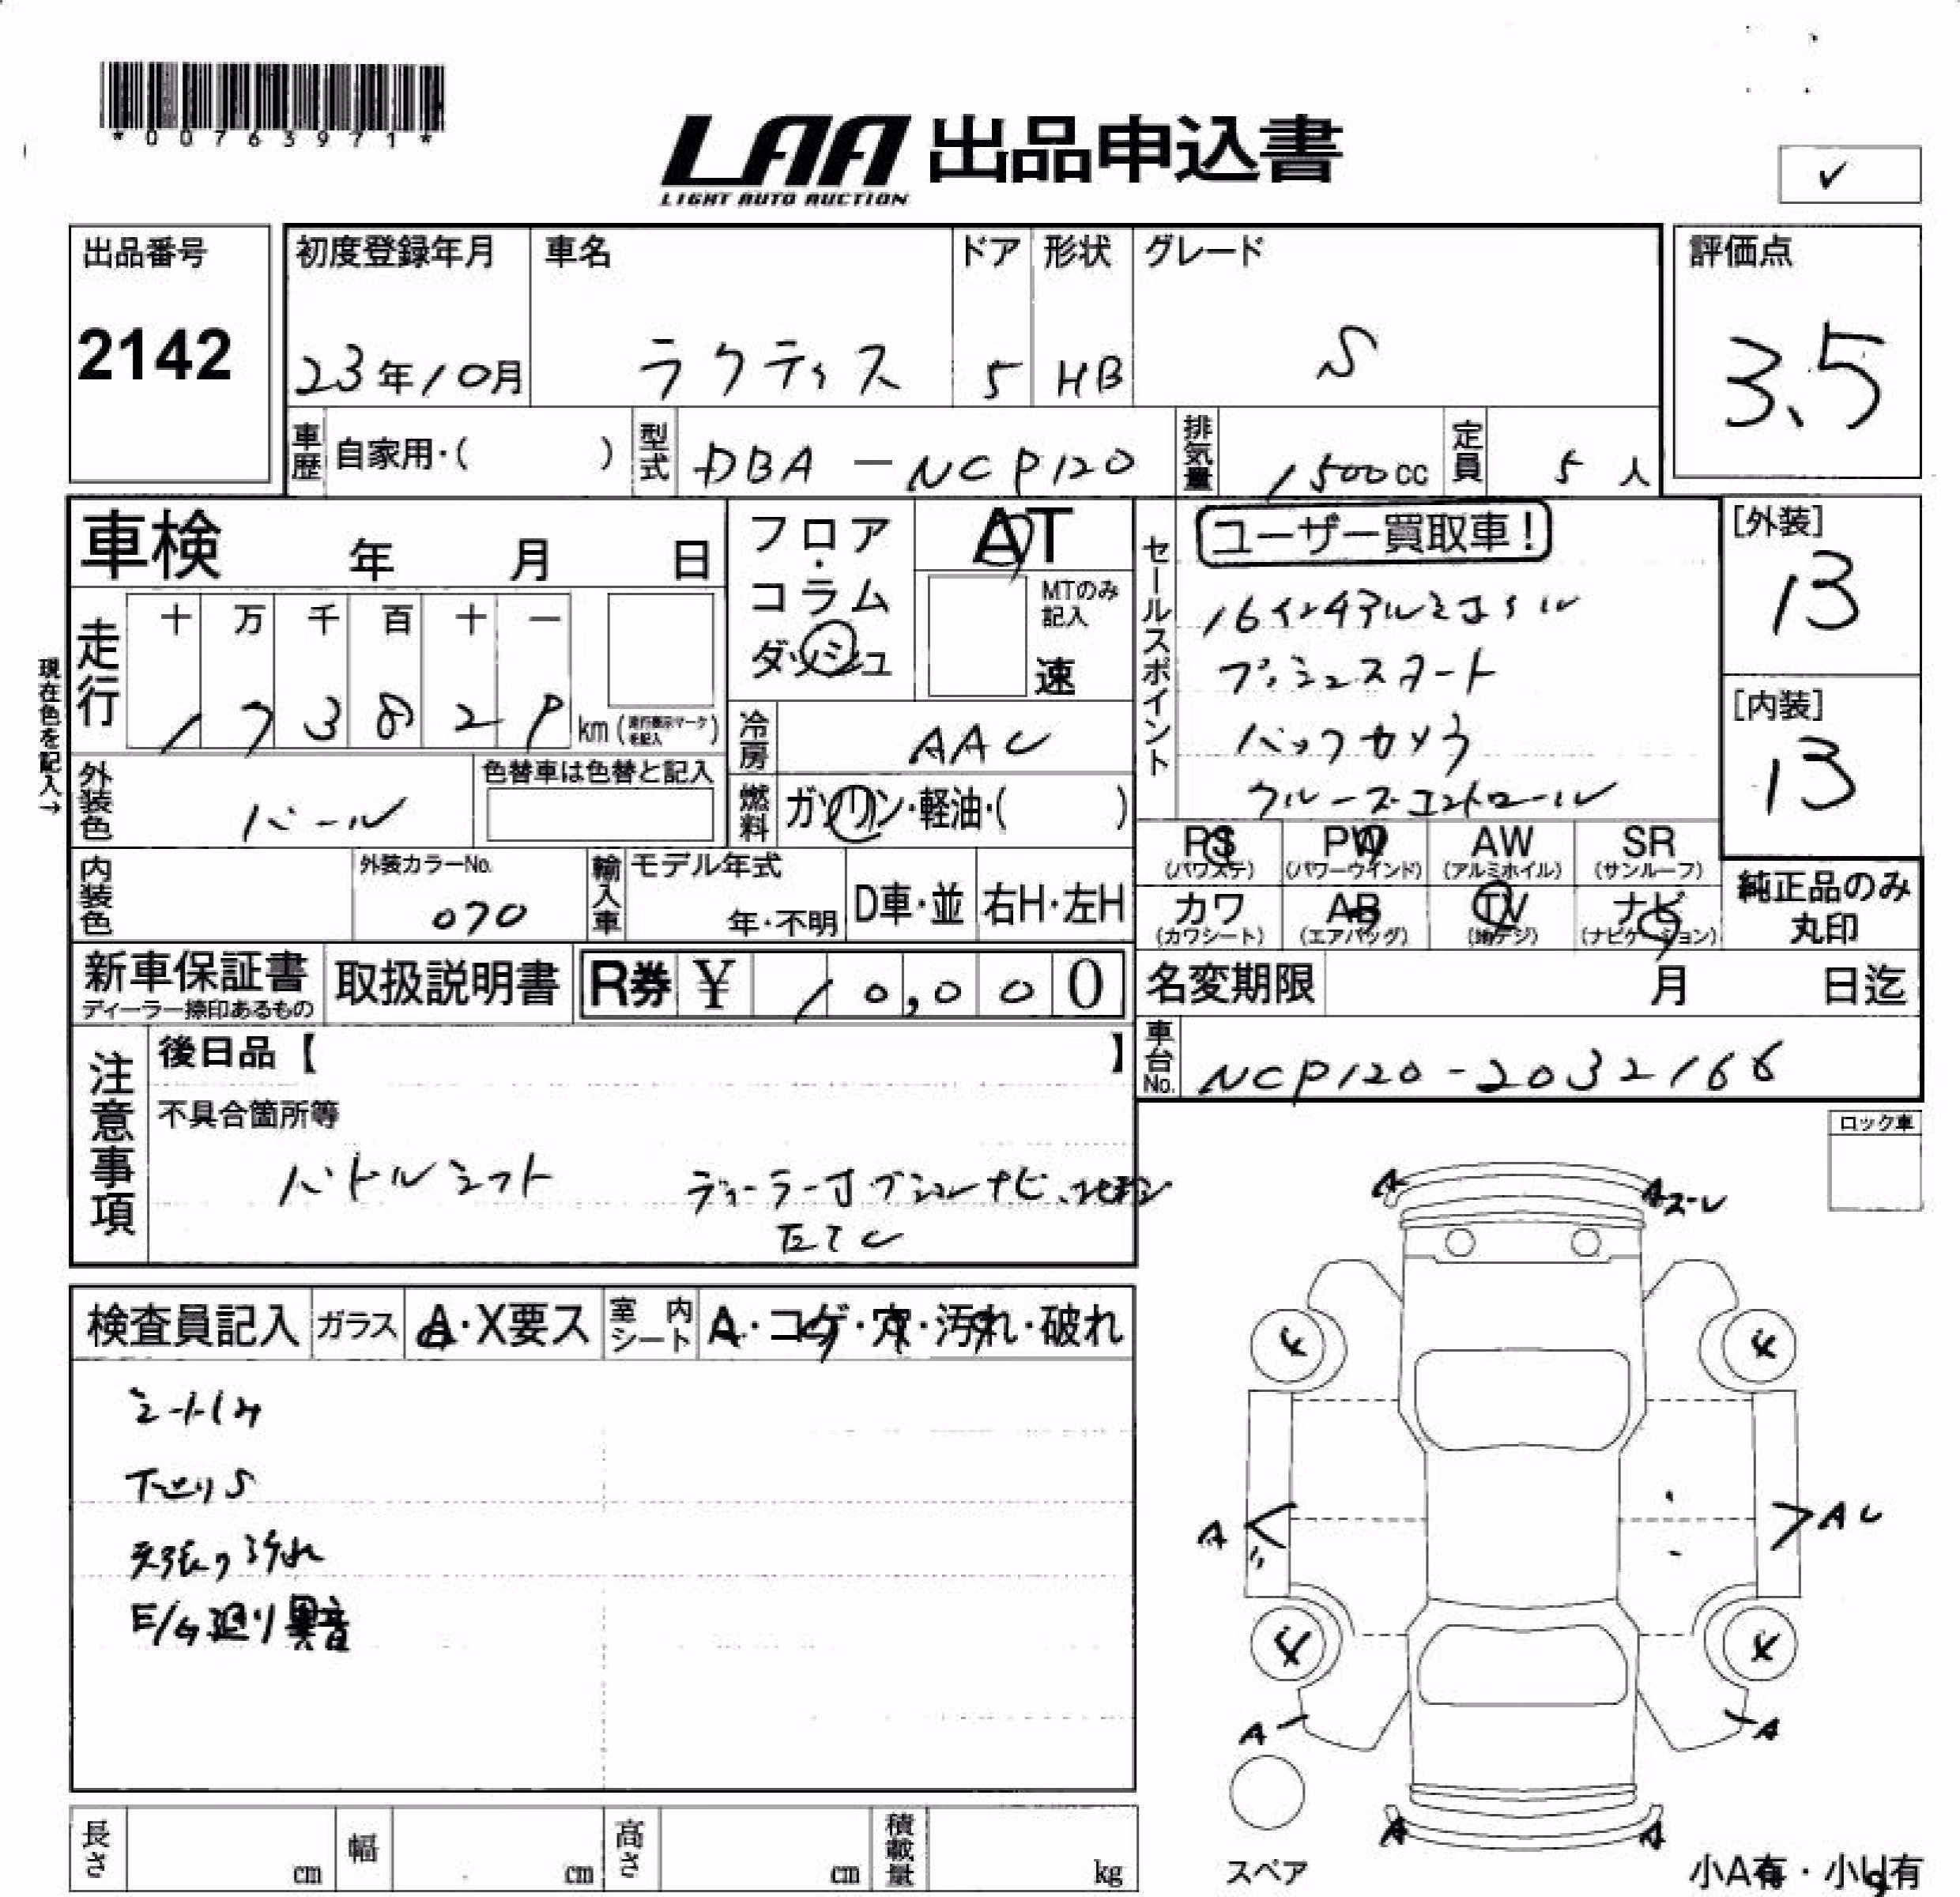 *00763971*
LAA 出品申込書
LIGHT AUTO AUCTION
✓
出品番号
2142
初度登録年月
23年10月
車名
ラクティス
ドア
5
形状
HB
グレード
S
評価点
3.5
車歴 自家用・( )
型式 DBA-NCP120
排気量 1500cc
定員 5人
車検 年 月 日
フロア・コラム ダッシュ
AT
MTのみ記入
速
現在色を記入→
走行
十 万 千 百 十 一
1 7 3 8 2 9 km
冷房 AAC
外装色 パール
色替車は色替と記入
燃料 ガソリン・軽油・( )
内装色
外装カラーNo.
070
輸入車 モデル年式
年・不明
D車・並
右H・左H
セールスポイント
ユーザー買取車!
16インチアルミホイル
プッシュスタート
バックカメラ
クルーズコントロール
[外装]
13
[内装]
13
PS PW AW SR
(パワステ) (パワーウインド) (アルミホイル) (サンルーフ)
カワ AB TV ナビ
(カワシート) (エアバッグ) (地デジ) (ナビゲーション)
純正品のみ
丸印
新車保証書
ディーラー捺印あるもの
取扱説明書
R券 ¥ 10,000
名変期限 月 日迄
車台No. NCP120-2032166
注意事項
後日品【 】
不具合箇所等
パドルシフト ディーラーオプションナビ、
ETC
ロック車
検査員記入
ガラス A・X要ス
室内シート A・コゲ・穴・汚れ・破れ
下廻りS
天張り汚れ
E/G廻り異音
A A
A AU
A A
A A
スペア
小A有・小U有
長さ cm 幅 cm 高さ cm 積載量 kg